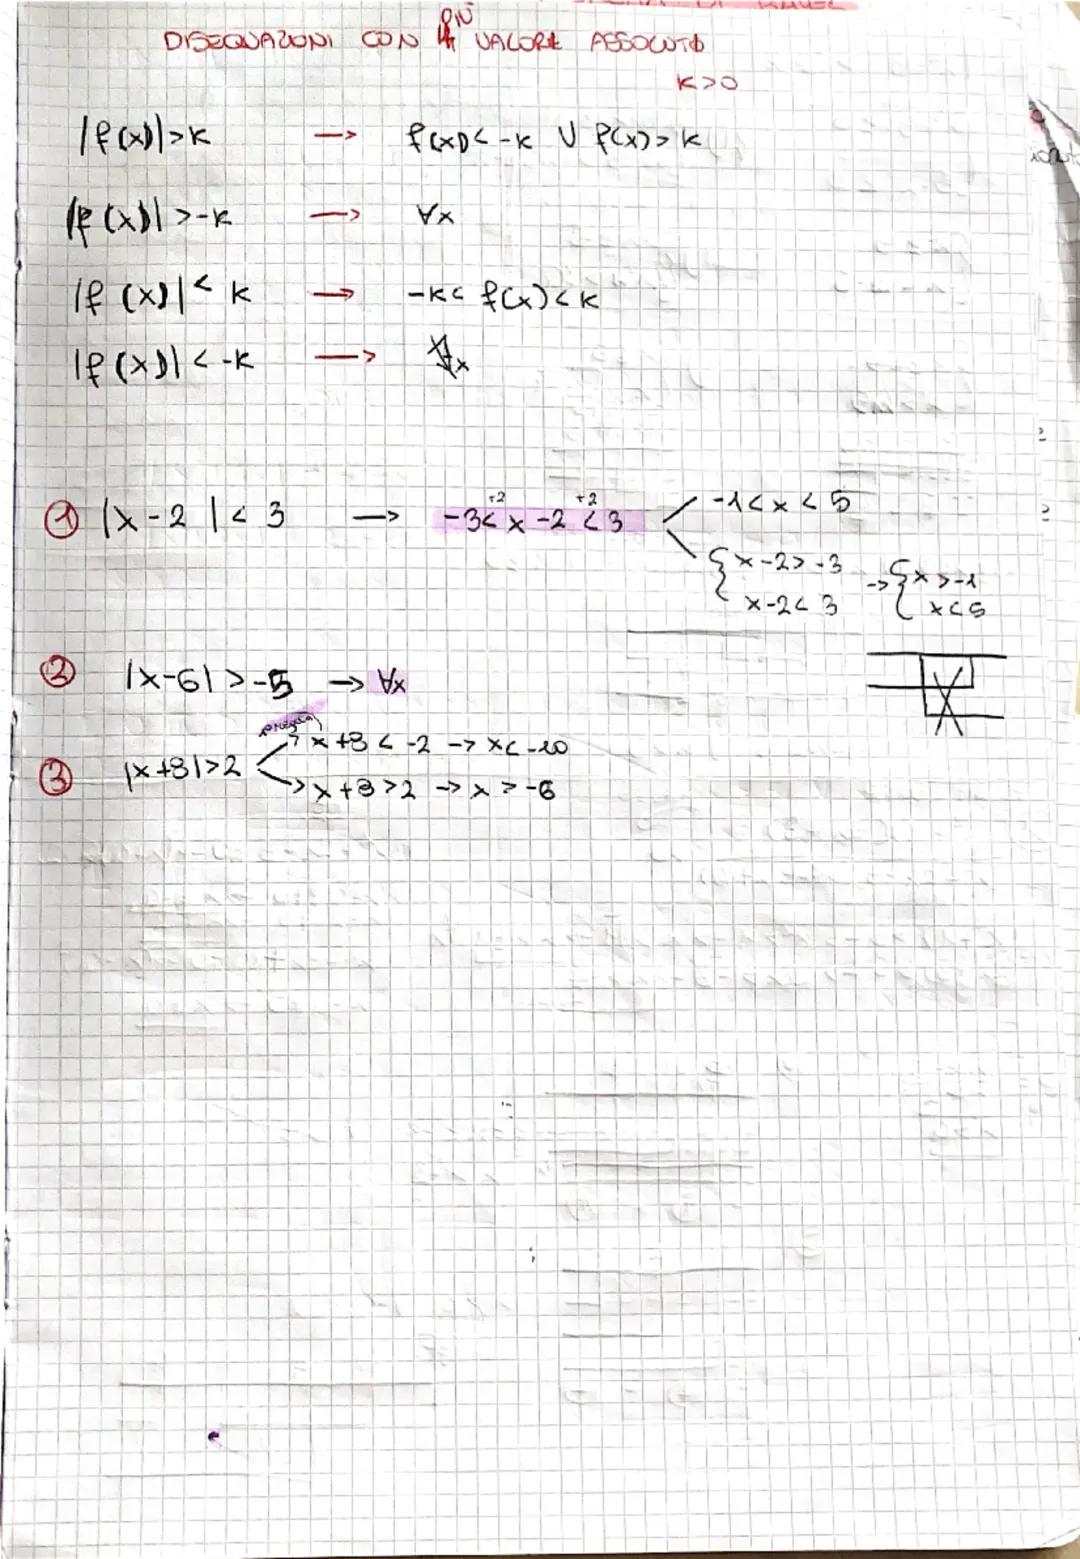 DISEQUAZIONI CON PIÙ VALORE ASSOLUTO
K>0
|f(x)|>K → f(x)<-K ∪ f(x)>K
|f(x)|>-K → ∀x
|f(x)|<K → -K<f(x)<K
|f(x)|<-K → ∄x
① |x-2|<3 → -3<x-2<3 -1<x<5
+2 +2
{x-2>-3 → {x>-1
x-2<3 x<5
② |x-6|>-5 → ∀x
③ |x+8|>2 → x+8<-2 → x<-10
→ x+8>2 → x>-6